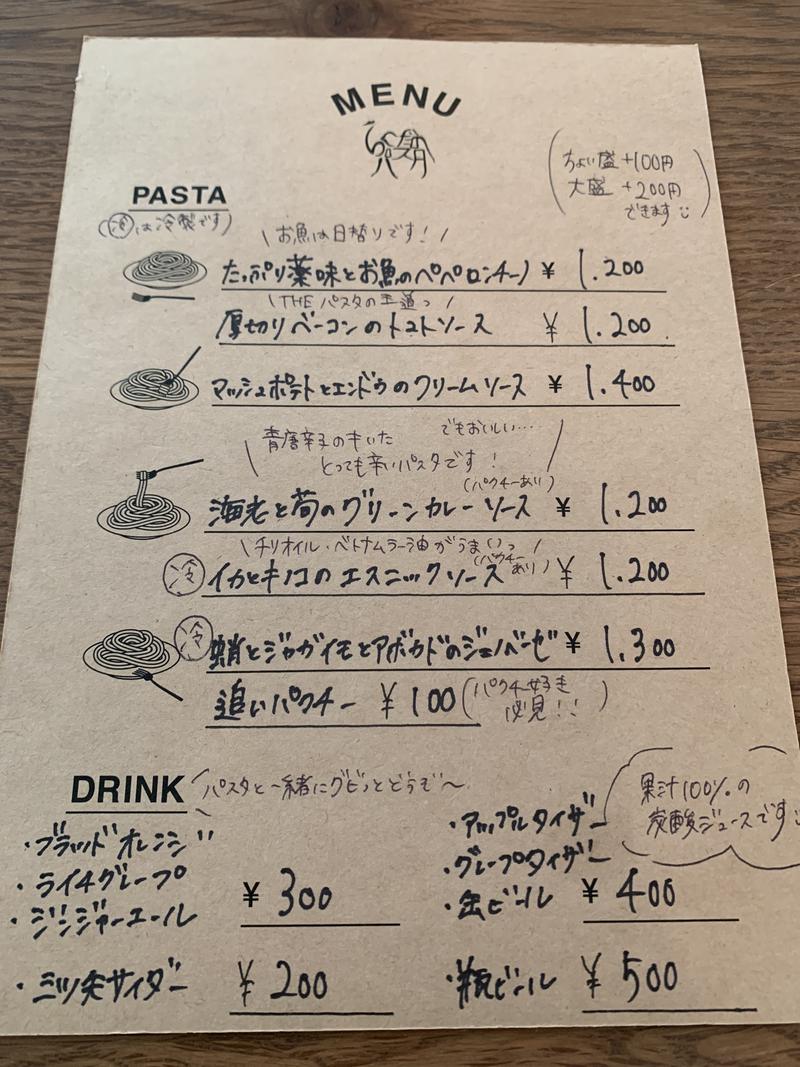 MENU
ちょい盛 +100円
大盛 +200円
できます
PASTA
(冷は冷製です)
\ お魚は日替りです! /
たっぷり薬味とお魚のペペロンチーノ ¥ 1.200
\ THE パスタの王道っ /
厚切りベーコンのトマトソース ¥ 1.200
マッシュポテトとエンドウのクリームソース ¥ 1.400
青唐辛子のキいた でもおいしい…
とっても辛いパスタです!
(パクチーあり)
海老と筍のグリーンカレーソース ¥ 1.200
\ チリオイル・ベトナムラー油がうまいっ /
(パクチーあり)
冷 イカとキノコのエスニックソース ¥ 1.200
冷 蛸とジャガイモとアボカドのジェノベーゼ ¥ 1.300
追いパクチー ¥ 100 (パクチー好き
必見!!)
DRINK パスタと一緒にグビッとどうぞ〜
果汁100%の
炭酸ジュースです
・ブラッドオレンジ
・ライチグレープ
・ジンジャーエール
¥ 300
・三ツ矢サイダー ¥ 200
・アップルタイザー
・グレープタイザー
・缶ビール ¥ 400
・瓶ビール ¥ 500